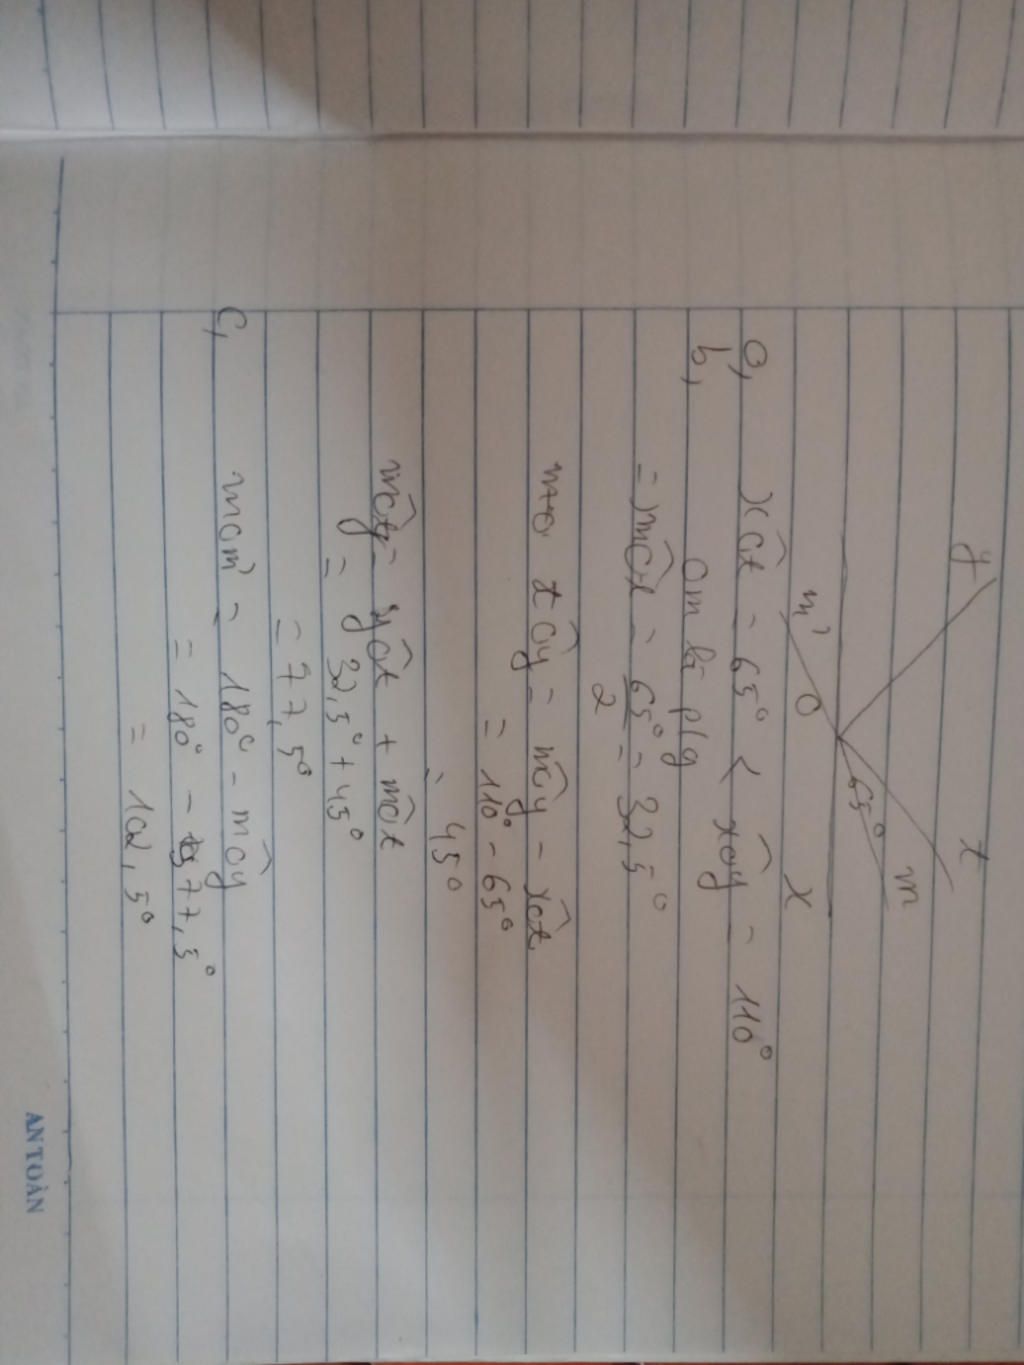 y
t
m
65°
O
m'
x
a, xOt = 65° < xOy = 110°
b, Om là plg
=) mOt = 65°/2 = 32,5°
tOy = xOy - xOt
= 110° - 65°
= 45°
mOy = yOt + mOt
= 32,5° + 45°
= 77,5°
c, mOm' = 180° - mOy
= 180° - 77,5°
= 102,5°
AN TOÀN